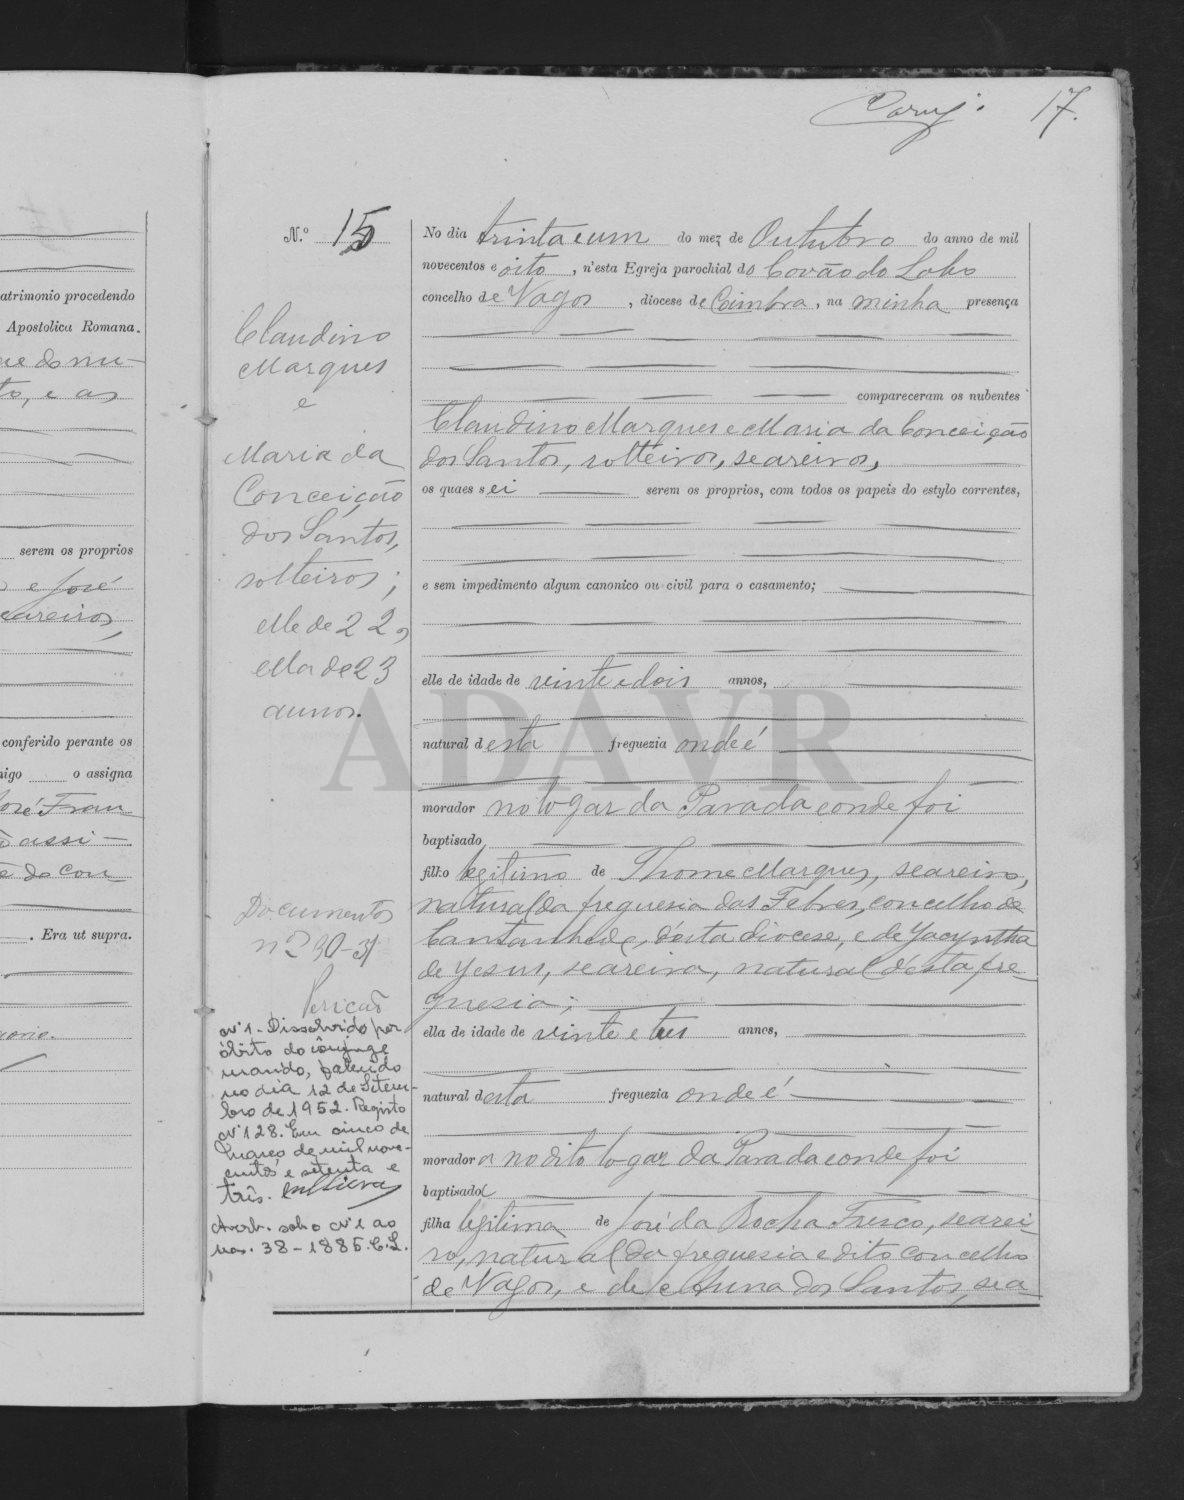 Coruj. 17.
atrimonio procedendo
Apostolica Romana.
serem os proprios
e José
eareiros,
conferido perante os
migo o assigna
assi-
. Era ut supra.
N.º 15
Claudino
Marques
e
Maria da
Conceição
dos Santos,
solteiros;
elle de 22,
ella de 23
annos.
Documentos
nos 30-31
nº 1. Dissolvido por
óbito do cônjuge
marido, falecido
no dia 12 de Setem-
bro de 1952. Registo
nº 128. Em cinco de
Março de mil nove-
centos e setenta e
três.
Averb. sob o nº 1 ao
nas. 38-1885. C.L.
No dia trinta e um do mez de Outubro do anno de mil
novecentos e oito, n'esta Egreja parochial do Covão do Lobo
concelho de Vagos, diocese de Coimbra, na minha presença
compareceram os nubentes
Claudino Marques e Maria da Conceição
dos Santos, solteiros, seareiros,
os quaes sei serem os proprios, com todos os papeis do estylo correntes,
e sem impedimento algum canonico ou civil para o casamento;
elle de idade de vinte e dois annos,
natural desta freguezia onde é
morador no logar da Parada e onde foi
baptisado
filho legitimo de Thome Marques, seareiro,
natural da freguesia das Febres, concelho de
Cantanhede, d'esta diocese, e de Jacyntha
de Jesus, seareira, natural d'esta fre-
guesia;
ella de idade de vinte e tres annos,
natural desta freguezia onde é
moradora no dito logar da Parada e onde foi
baptisada
filha legitima de José da Rocha Fresco, searei-
ro, natural da freguesia e dito concelho
de Vagos, e de Anna dos Santos, sea-
ADAVR